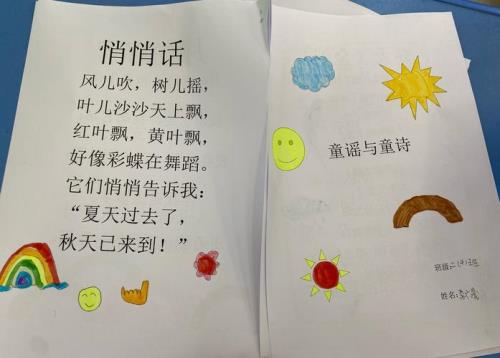 悄悄话
风儿吹，树儿摇，
叶儿沙沙天上飘，
红叶飘，黄叶飘，
好像彩蝶在舞蹈。
它们悄悄告诉我：
“夏天过去了，
秋天已来到！”
童谣与童诗
班级
姓名: